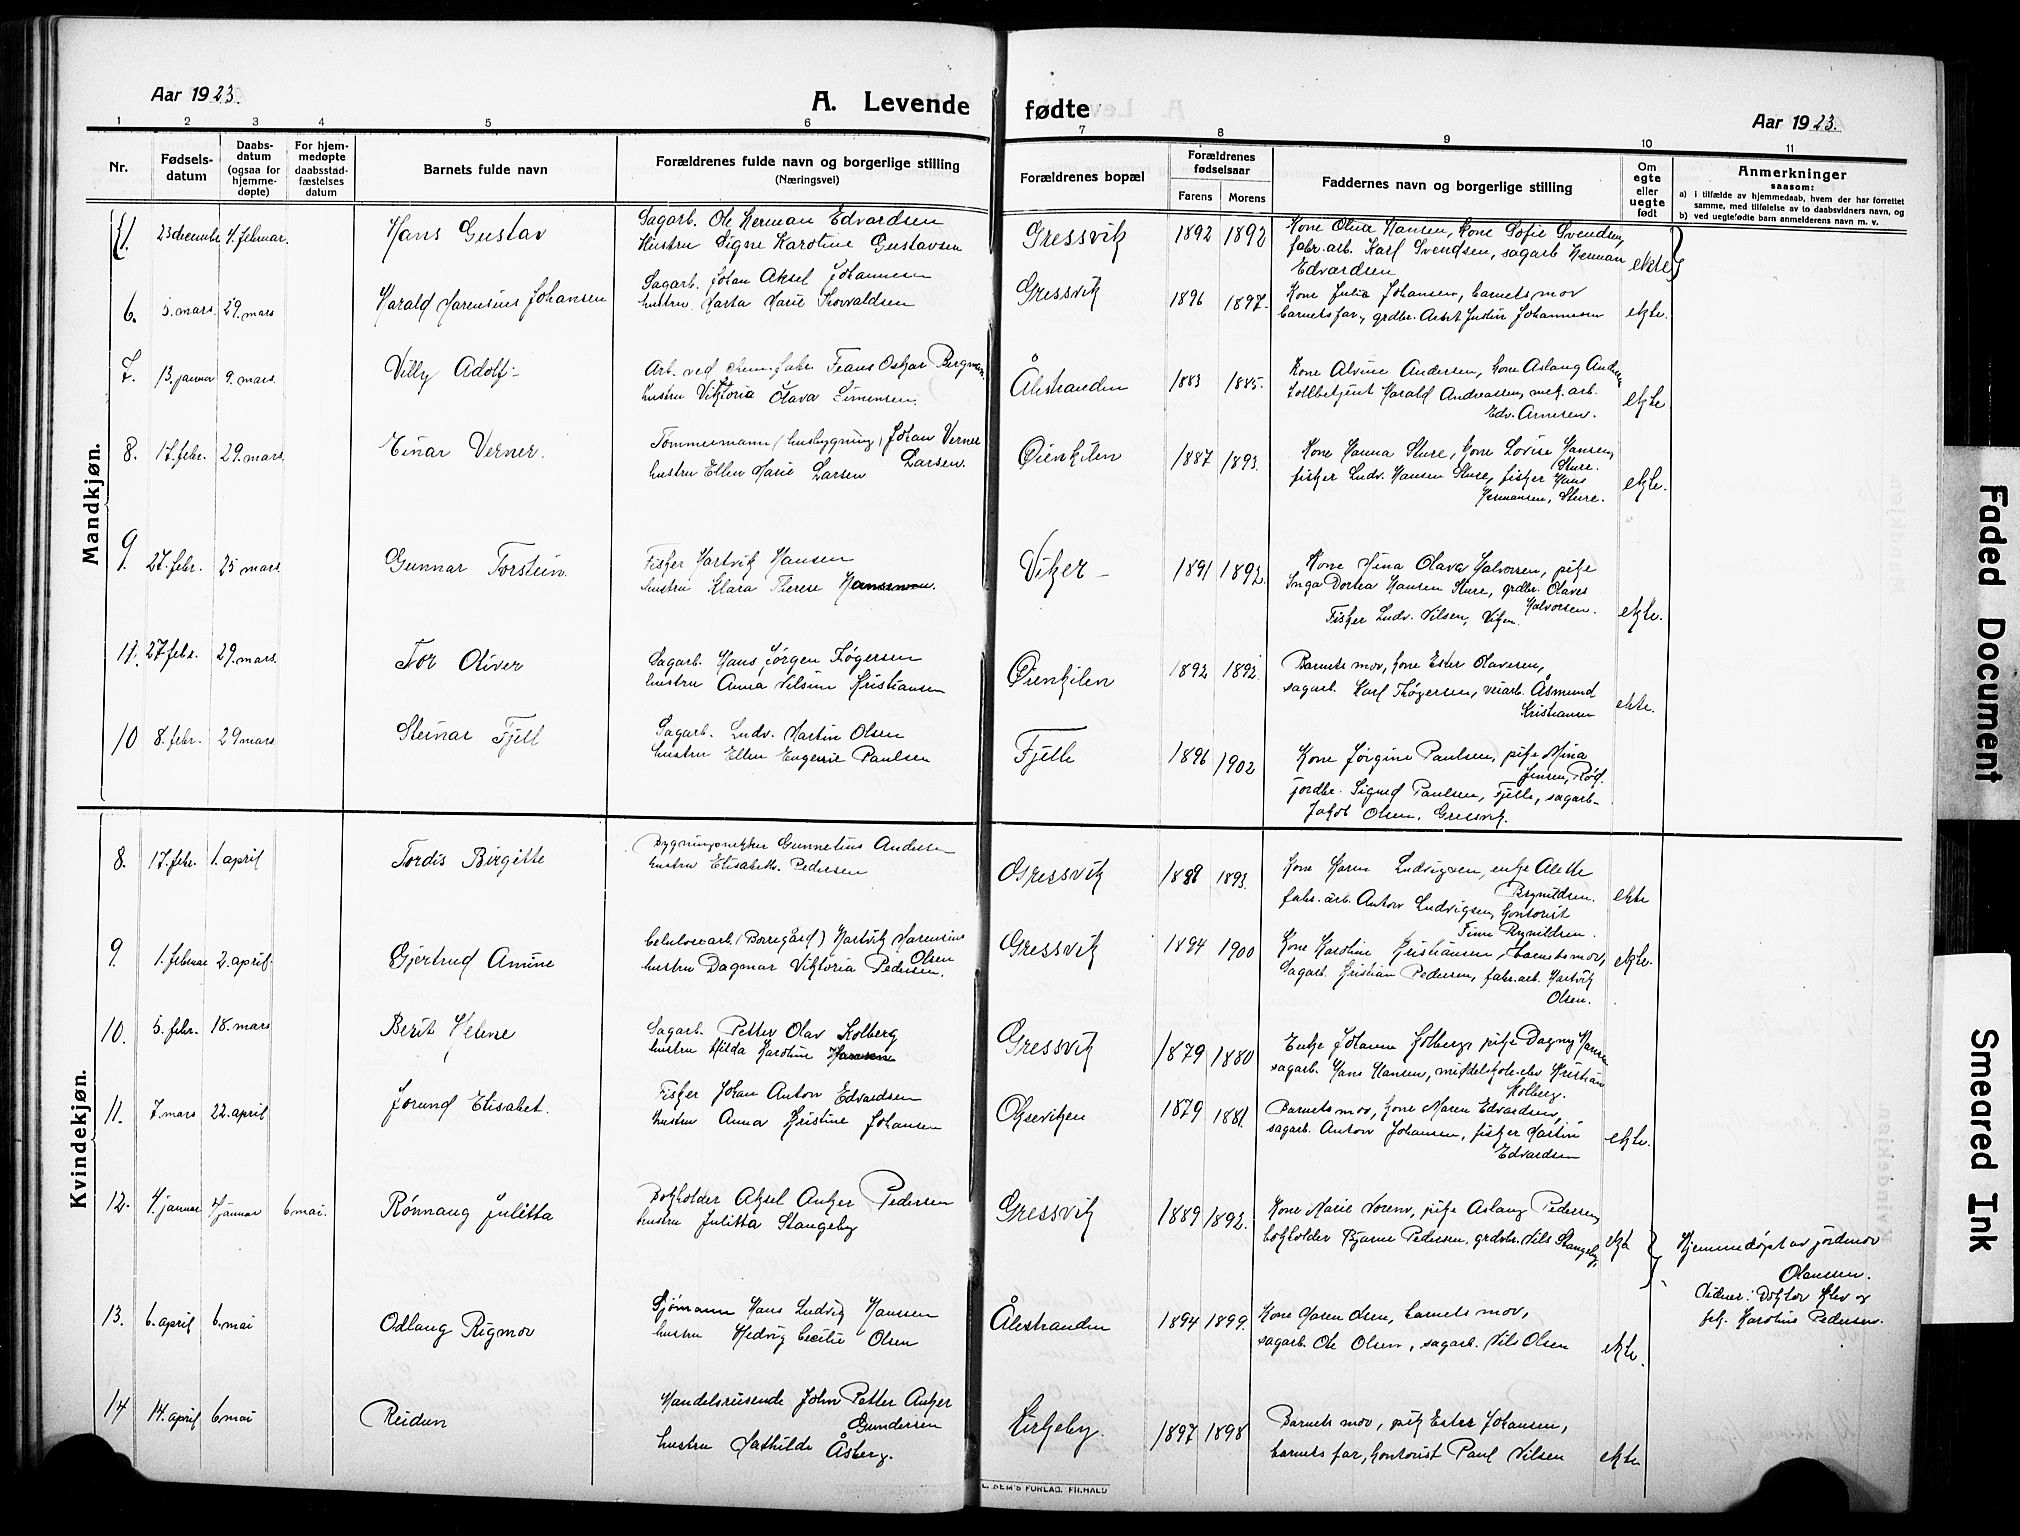 Aar 1923.
A. Levende fødte
Aar 1923.
1 2 3 4 5 6 7 8 9 10 11
Nr.
Fødsels-
datum
Daabs-
datum
(ogsaa for
hjemme-
døpte)
For hjem-
medøpte
daabsstad-
fæstelses
datum
Barnets fulde navn
Forældrenes fulde navn og borgerlige stilling
(Næringsvei)
Forældrenes bopæl
Forældrenes
fødselsaar
Farens Morens
Faddernes navn og borgerlige stilling
Om
egte
eller
uegte
født
Anmerkninger
saasom:
a) i tilfælde av hjemmedaab, hvem der har forrettet
samme, med tilføielse av to daabsvidners navn, og
b) ved uegte fødte barn anmelderens navn m. v.
Mandkjøn.
1. 23 decembe 4. februar. Hans Gustav
Sagarb. Ole Herman Edvardsen
Hustru Signe Karoline Gustavsen
Gressvik 1892 1892
Kone Olina Hansen, kone Sofie Svendsen,
fabr. arb. Karl Svendsen, sagarb Herman
Edvardsen
ekte
6. 5. mars. 29. mars Harald Marensius Johansen
Sagarb. Johan Aksel Johannesen
hustru Marta Marie Thorvaldsen
Gressvik 1896 1897.
Kone Julia Johansen, barnets mor
barnets far, grdbr. Arbet Justin Johannesen
ekte.
7. 13. januar 9. mars. Villy Adolf
Arb. ved chem. fabr. Frans Oskar Bergman.
hustru Viktoria Olava Simensen.
Ålestranden 1883 1885.
Kone Alvine Andersen, kone Aslaug Andersen
tollbetjent Harald Andreassen, mek. arb.
Edv. Arnesen.
ekte
8. 17. febr. 29. mars. Einar Verner.
Tømmermann (husbygning) Johan Verner
Larsen.
hustru Ellen Marie Larsen
Øienkilen 1887 1893.
Kone Hanna Sture, kone Lovise Hansen,
Sture.
fisker Ludv. Hansen Sture, fisker Hans
Hermansen, Sture.
ekte.
9. 27. febr. 25 mars Gunnar Torstein.
Fisker Hartvik Hansen
hustru Klara Therese
Viker 1891 1892.
Kone Mina Olava Halvorsen, pike
Inga Dortea Hansen Sture, grdbr. Olaves
Halvorsen.
Fisker Ludv. Nilsen, Viker.
ekte.
11. 27. febr. 29. mars. Tor Oliver
Sagarb. Hans Jørgen Thøgersen
hustru Anna Nilsine Kristiansen
Øienkilen 1892 1892.
Barnets mor, kone Ester Olavesen,
sagarb. Karl Thøgersen, veiarb. Åsmund
Kristiansen
ekte.
10 8. febr. 29 mars Steinar Fjell
Sagarb. Ludv. Martin Olsen
hustru Ellen Eugenie Paulsen
Fjelle 1896 1902
Kone Jørgine Paulsen, pike Mina
Jensen, Rød.
jordbr. Sigurd Paulsen, Fjelle, sagarb.
Jakob Olsen, Gressvik.
Kvindekjøn.
8. 17. febr. 1. april Tordis Birgitte
Bygningssnekker Gunnelius Andersen
hustru Elisabeth Pedersen
Gressvik 1888 1893.
Kone Karen Ludvigsen, enke Alette
Brynildsen.
fabr. arb. Anton Ludvigsen, kontorist
Finn Brynildsen.
ekte
9. 1. februar 2. april Gjertrud Amine
Celulosearb. (Borregård) Hartvik Marensius
Olsen
hustru Dagmar Viktoria Pedersen.
Gressvik 1894 1900
Kone Karoline Kristiansen, barnets mor,
Sagarb. Kristian Pedersen, fabr. arb. Hartvik
Olsen.
ekte.
10. 5. febr. 18. mars Berit Helene
Sagarb. Petter Olav Kolberg
hustru Hilda Karoline Hansen
Gressvik 1879 1880
Enke Johanne Kolberg, pike Dagny Hansen
sagarb. Hans Hansen, middelskole-elev Kristian
Kolberg.
11. 7. mars 22. april Jorund Elisabet.
Fisker Johan Anton Edvardsen
hustru Anna Kristine Johansen
Okseviken 1879 1881.
Barnets mor, kone Maren Edvardsen,
sagarb. Anton Johansen, fisker Martin
Edvardsen
ekte.
12. 4. januar 4 januar 6 mai. Rønnaug Julitta
Bokholder Aksel Anker Pedersen
hustru Julitta Stangeby
Gressvik 1889 1892.
Kone Marie Noren, pike Aslaug Pedersen,
bokholder Bjarne Pedersen, grdbr. Nils Stangeby,
ekte
Hjemmedøpt av jordmor
Olaussen.
Vidner: Doktor Klev og
frk. Karoline Pedersen.
13. 6. april 6. mai Odlaug Rigmor
Sjømann Hans Ludvig Hansen
hustru Hedvig Cecilie Olsen
Ålestranden 1894 1899.
Kone Maren Olsen, barnets mor,
sagarb. Ole Olsen, sagarb. Nils Olsen
ekte.
14 14. april 6 mai Reidun
Handelsreisende John Petter Anker
Gundersen
hustru Mathilde Åsberg.
Kirkeby. 1897 1898
Barnets mor, pike Ester Johansen,
barnets far, kontorist Paul Nilsen
ekte
E. SEM'S FORLAG, FR.HALD
Faded Document
Smeared Ink